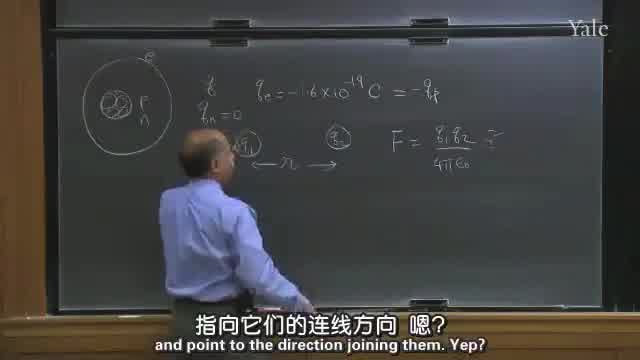 Yale
e
P
n
q
qₑ = -1.6 × 10⁻¹⁹ C = -qₚ
qₙ = 0
q₁
q₂
← r →
F = q₁q₂ / 4πε₀
指向它们的连线方向 嗯?
and point to the direction joining them. Yep?